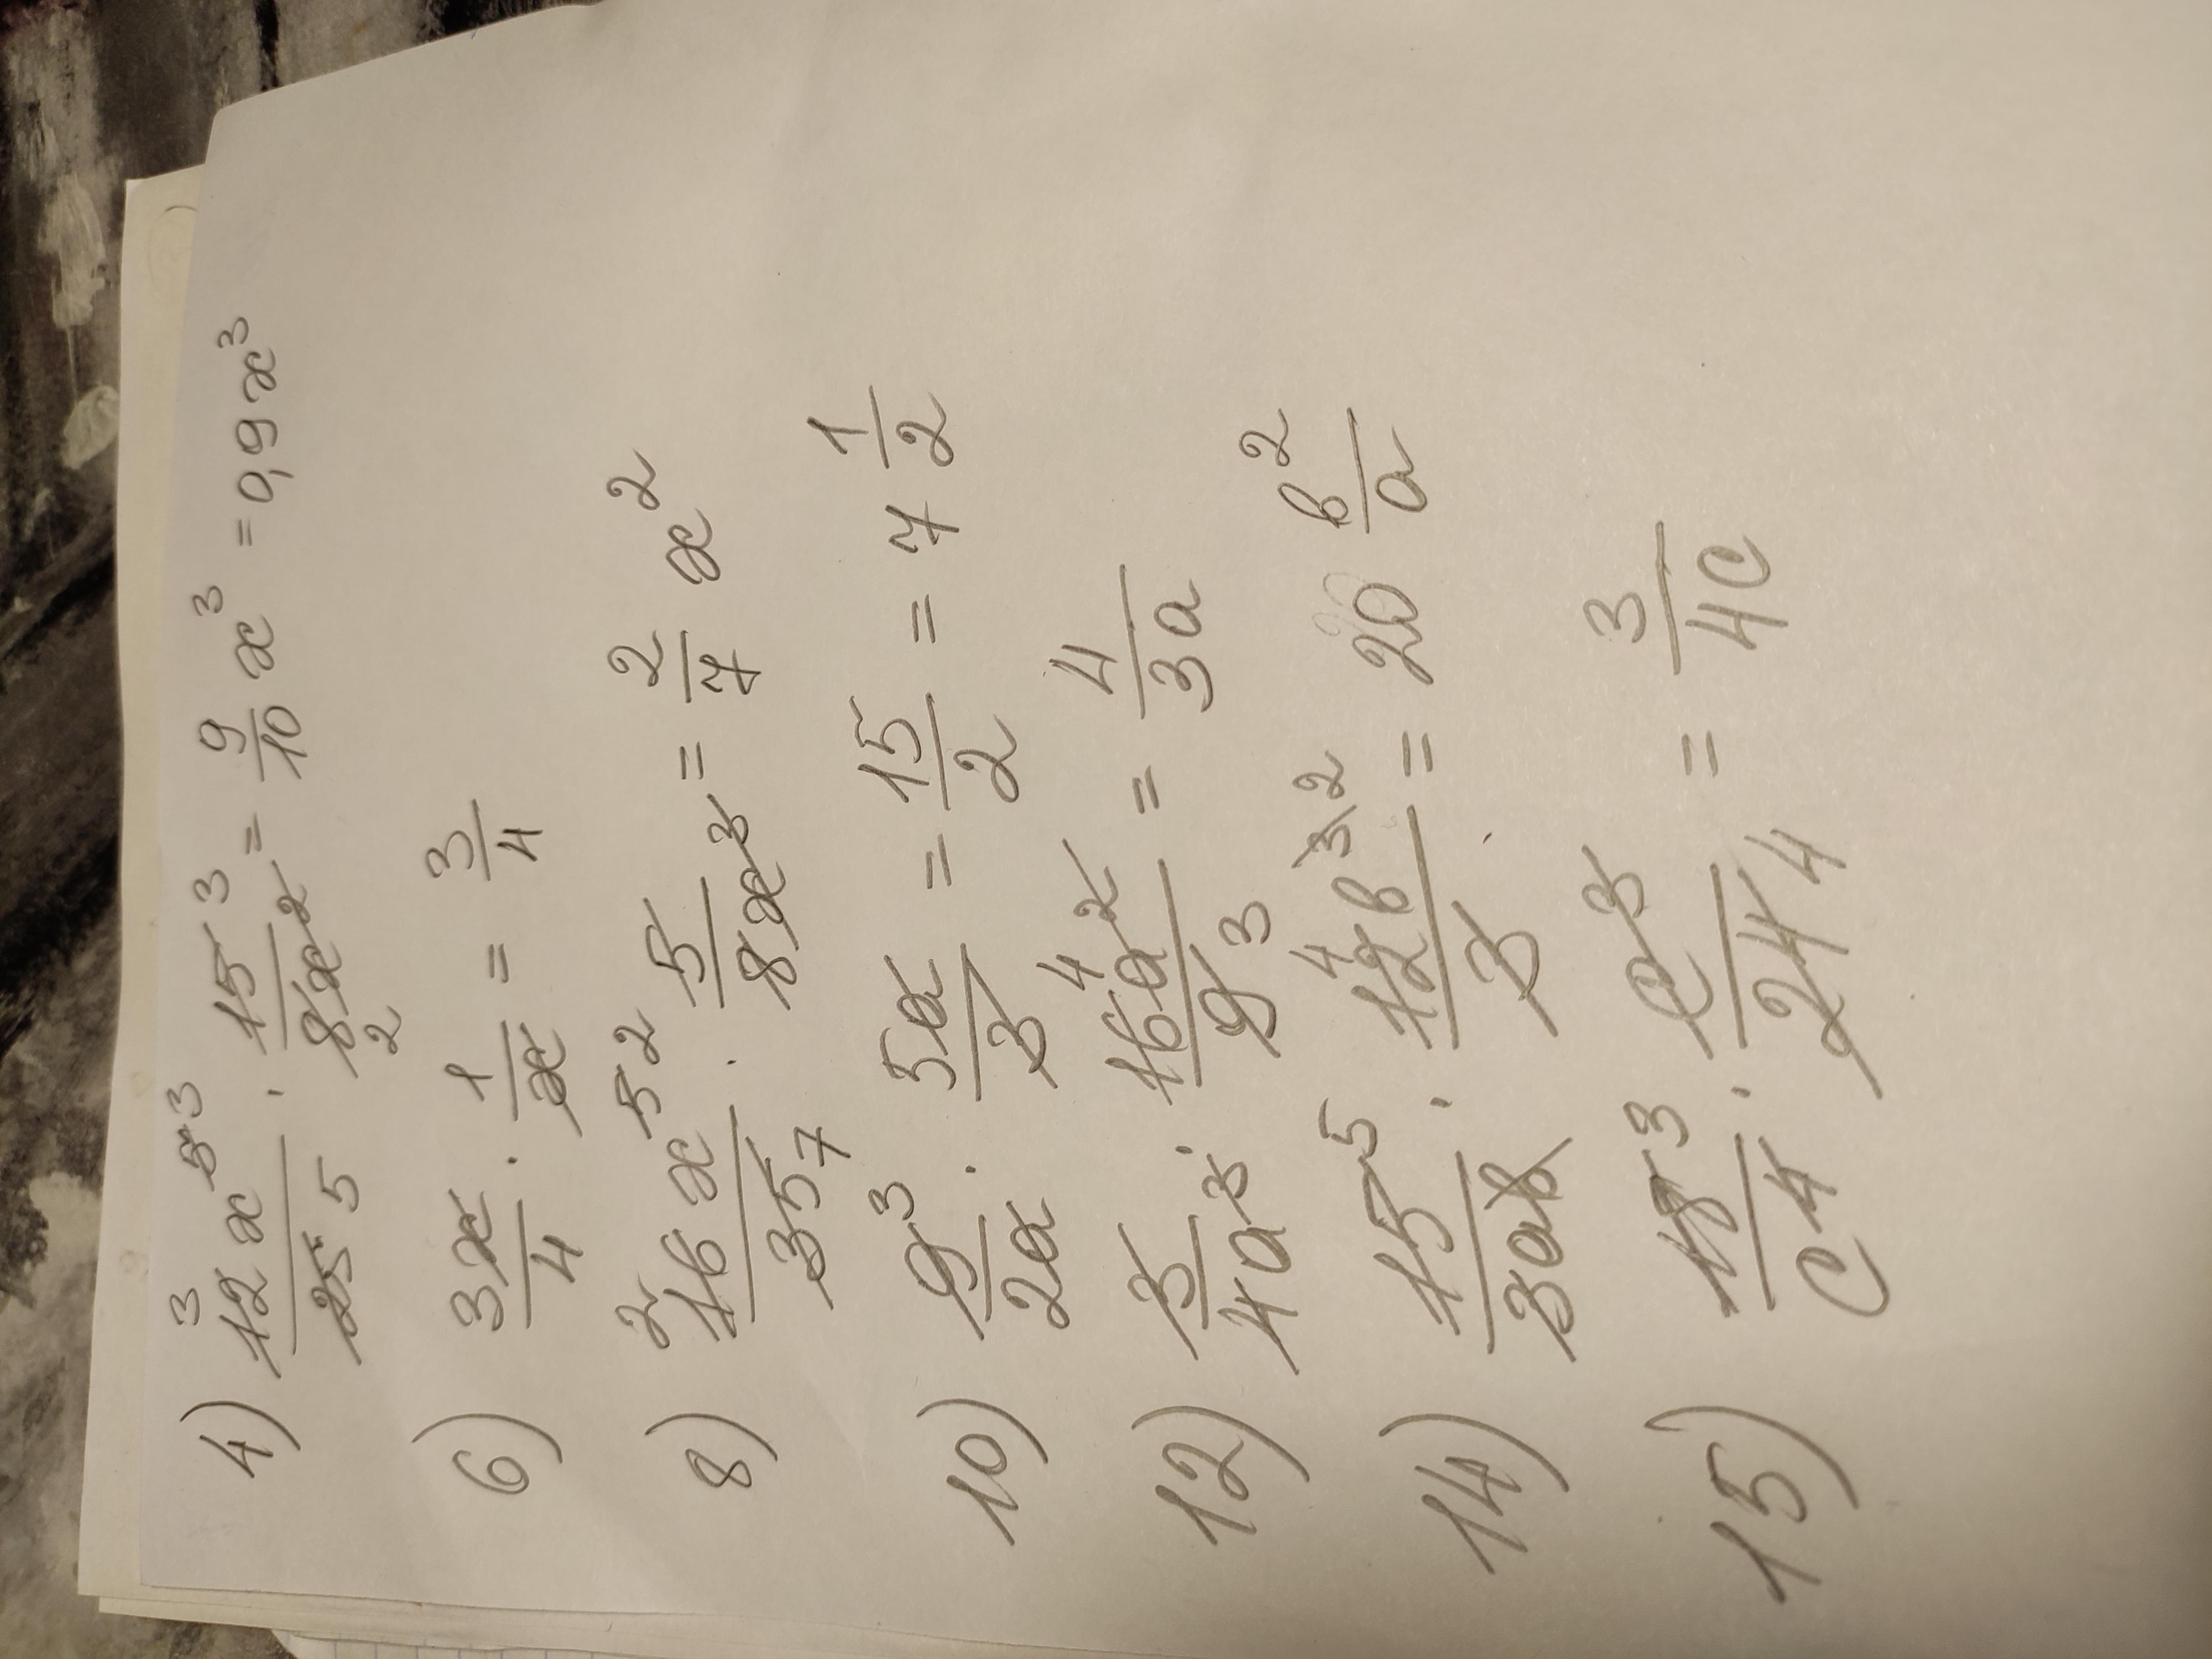 4) 3 12x⁵ ³/25 5 · 15 3/8x² 2 = 9/10 x³ = 0,9x³
6) 3x/4 · 1/x = 3/4
8) 2 16x⁵ ²/35 7 · 5/8x³ = 2/7 x²
10) 9 3/2a · 5a/3 = 15/2 = 7 1/2
12) 3/4a³ · 16a² 4/9 3 = 4/3a
14) 15 5/3ab · 4 12b³ ²/3 = 20 b²/a
15) 18 3/c⁴ · c³/24 4 = 3/4c